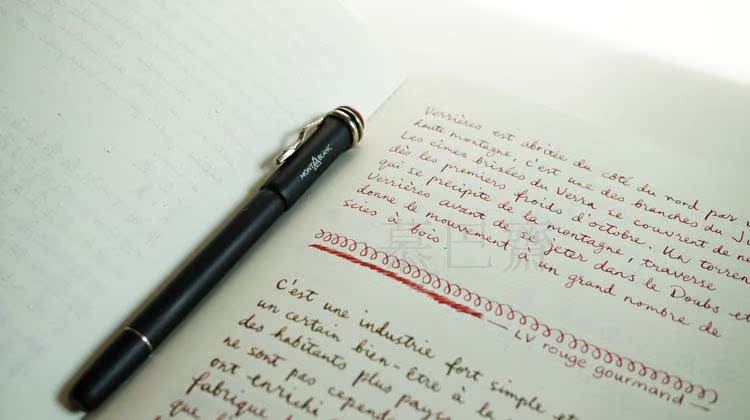 MONTBLANC
Verrières est abritée du côté du nord par u
haute montagne, c'est une des branches du Ju
Les cimes brisées du Verra se couvrent de ne
dès les premiers froids d'octobre. Un torren
qui se précipite de la montagne, traverse
Verrières avant de se jeter dans le Doubs et
donne le mouvement à un grand nombre de
scies à bois.
慕巴齋
LV rouge gourmand
C'est une industrie fort simple et
un certain bien-être à la
des habitants plus pays
ne sont pas cepend
ont enrichi
fabrique
que l